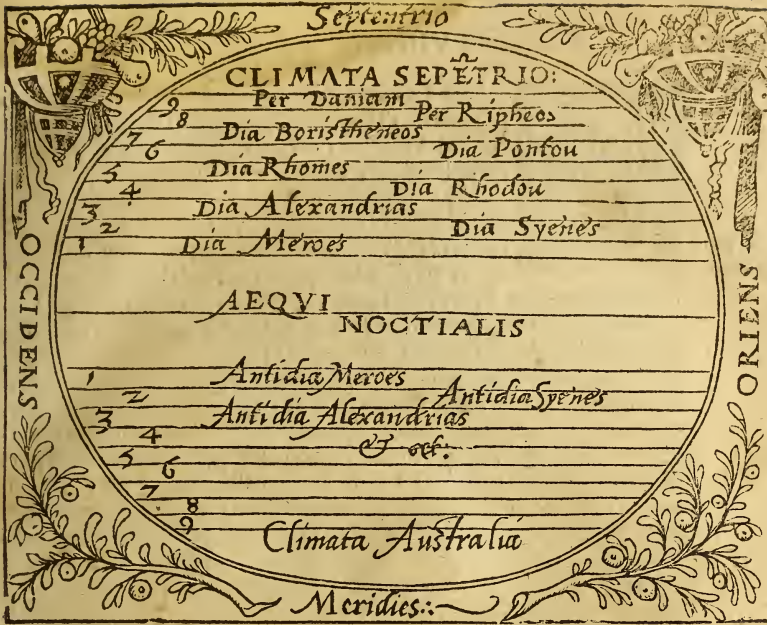 Septentrio
CLIMATA SEPĒTRIO:
9 Per Daniam
8 Per Ripheos
7 Dia Boristheneos
6 Dia Pontou
5 Dia Rhomes
4 Dia Rhodou
3 Dia Alexandrias
2 Dia Syenes
1 Dia Meroes
OCCIDENS
ORIENS
AEQVI
NOCTIALIS
1 Antidia Meroes
2 Antidia Syenes
3 Antidia Alexandrias
4
&
5
6
7
8
9
Climata Australia
Meridies: